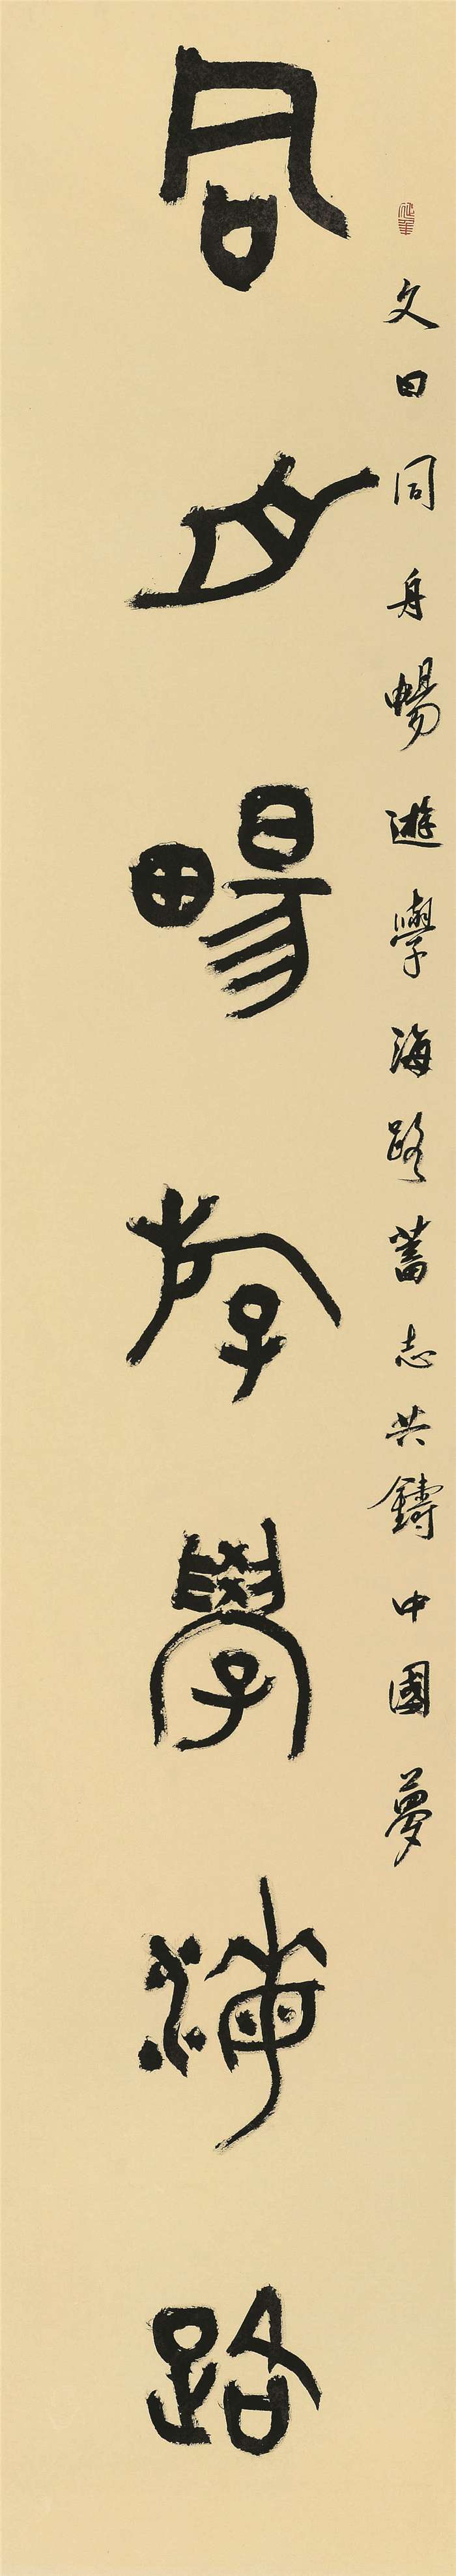 文曰同舟暢遊學海路蓄志共鑄中國夢
同舟暢游學海路